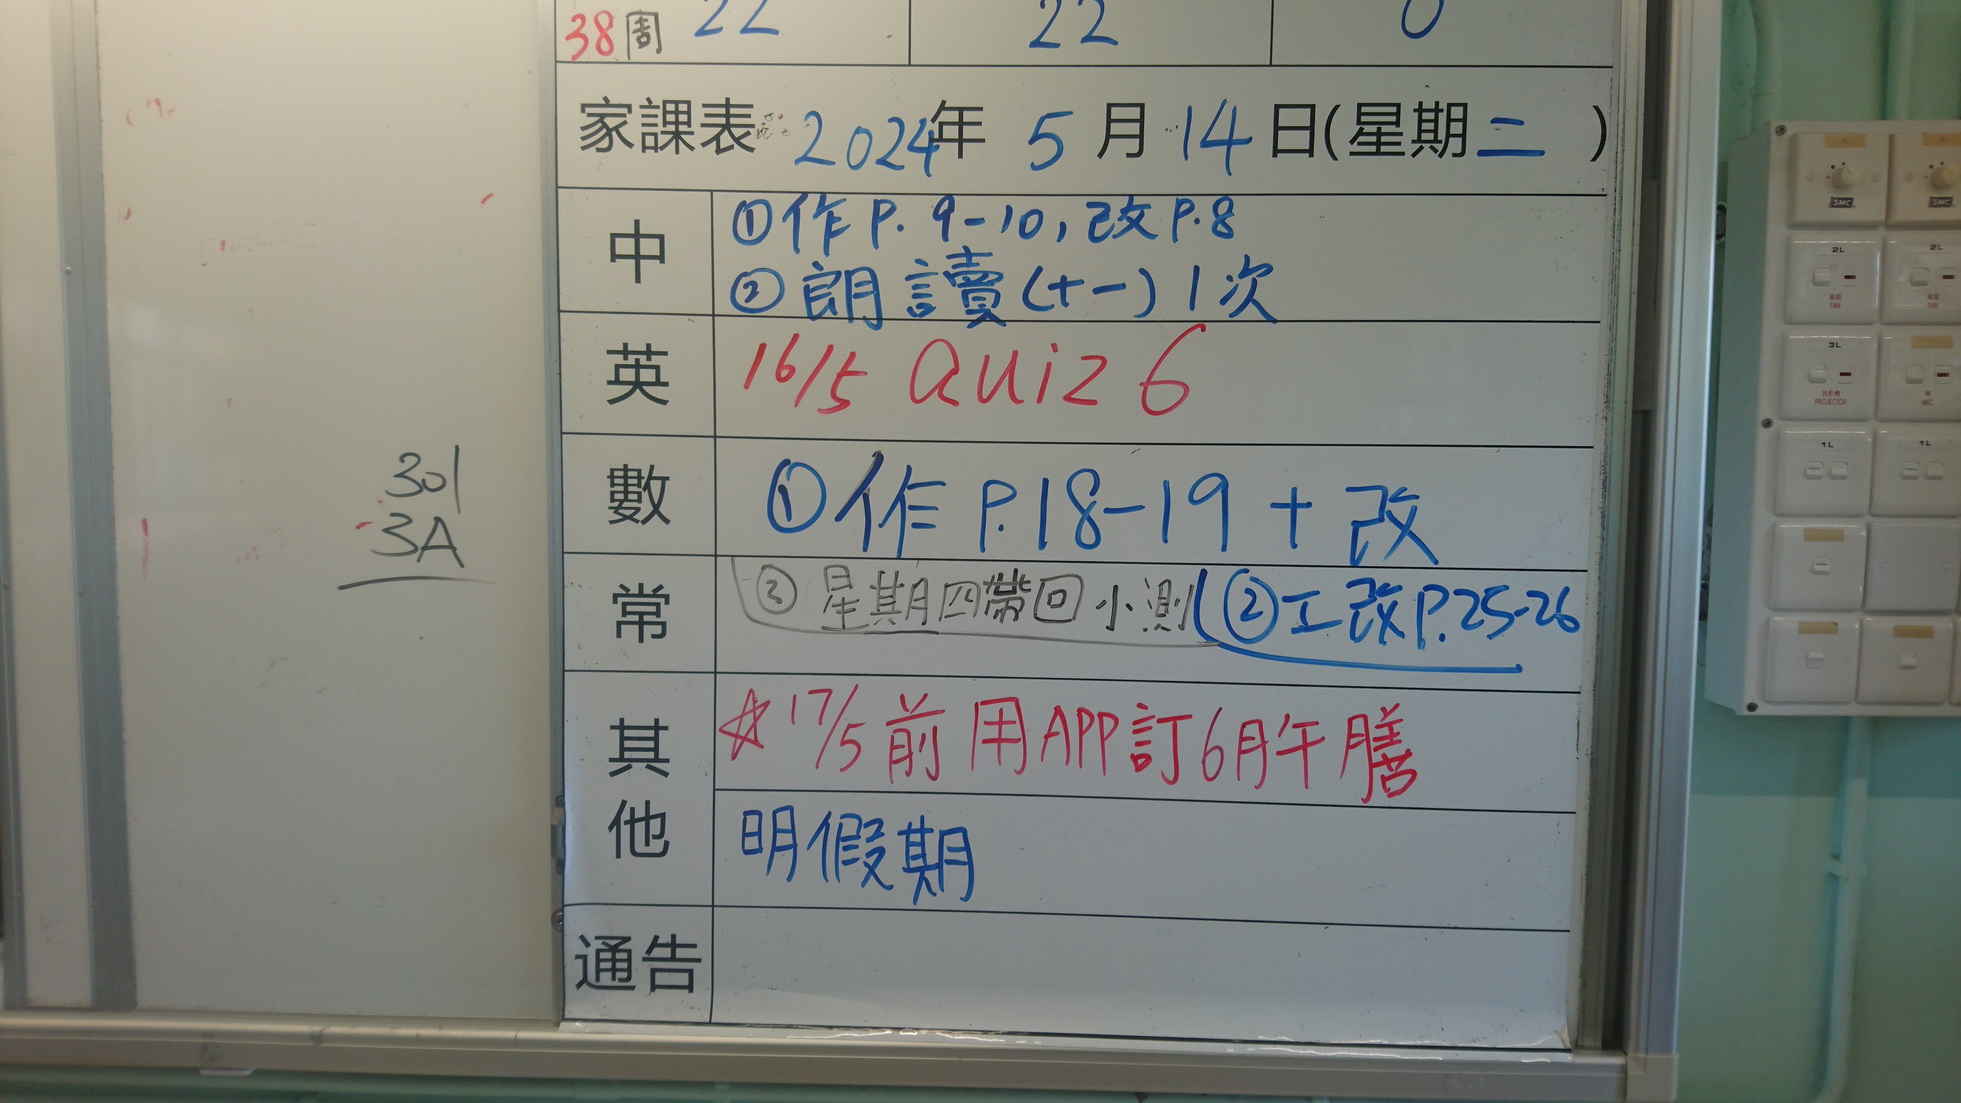 38周 22 22 0
家課表 2024年 5月14日(星期二)
中
①作P.9-10,改P.8
②朗讀(十一)1次
英
16/5 Quiz 6
數
①作P.18-19+改
常
③星期四帶回小測
②工改P.25-26
其他
☆17/5前用APP訂6月午膳
明假期
通告
301
3A
SMC
SMC
2L
2L
FAN
FAN
3L
PROJECTOR
MIC
1L
1L